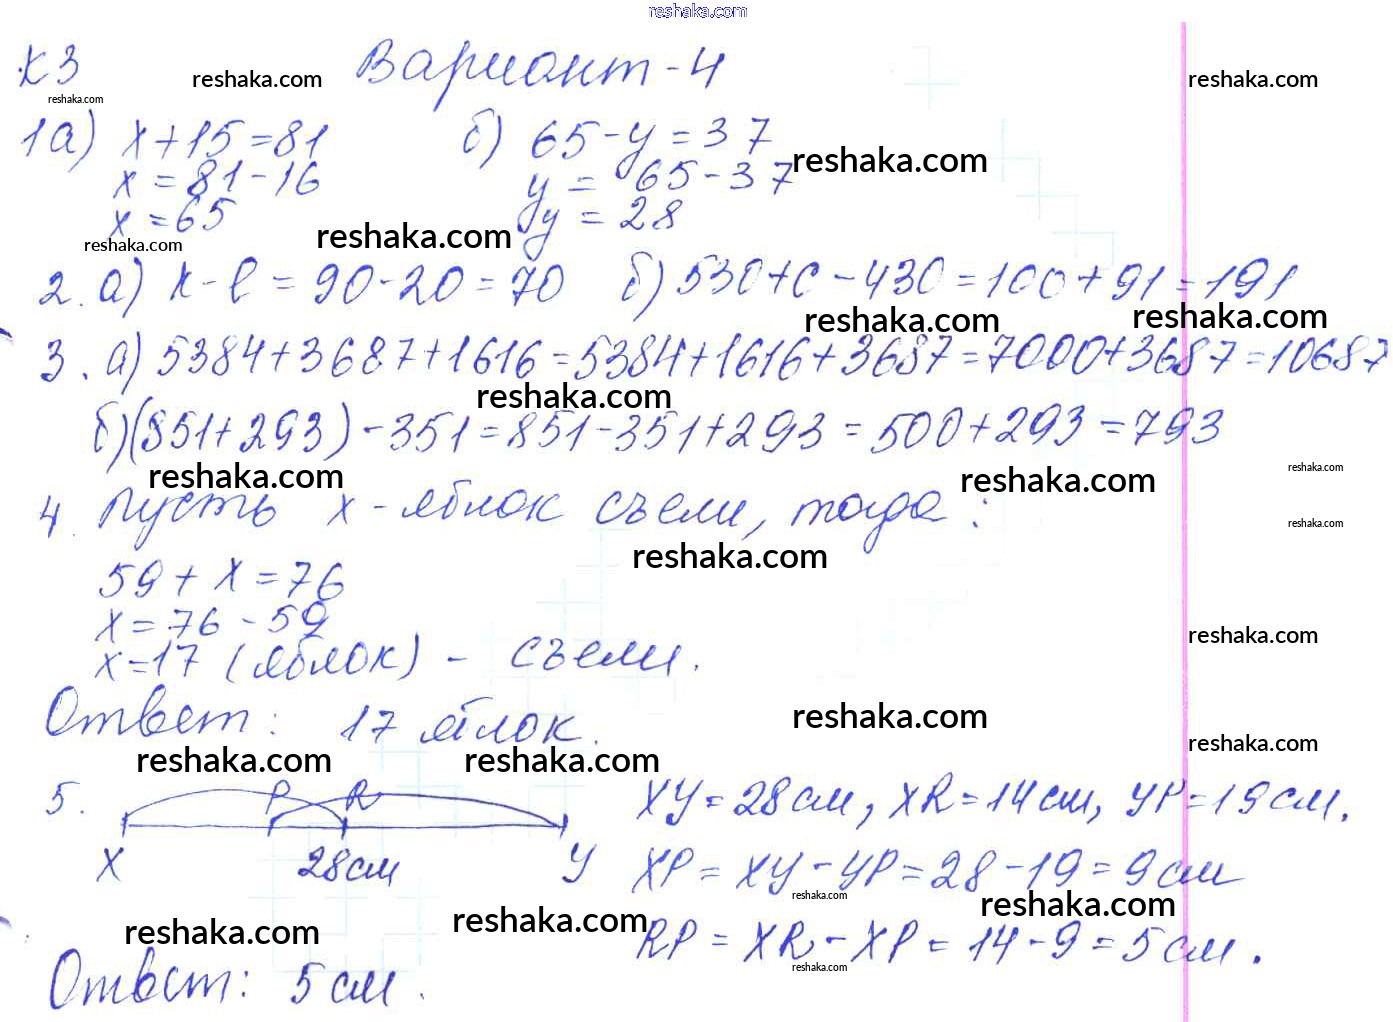 reshaka.com
К3 reshaka.com Вариант-4 reshaka.com
reshaka.com
1а) x+15=81 б) 65-y=37
reshaka.com
x=81-16 y=65-37
x=65 y=28
reshaka.com reshaka.com
2. а) k-l=90-20=70 б) 530+c-430=100+91=191
reshaka.com reshaka.com
3. а) 5384+3687+1616=5384+1616+3687=7000+3687=10687
reshaka.com
б) (851+293)-351=851-351+293=500+293=793
reshaka.com reshaka.com reshaka.com
4. Пусть x-яблок съели, тогда:
reshaka.com
reshaka.com
59+x=76
x=76-59
reshaka.com
x=17 (яблок) - съели.
Ответ: 17 яблок.
reshaka.com
reshaka.com reshaka.com reshaka.com
5. P R XY=28см, XR=14см, YP=19см.
X 28см Y XP=XY-YP=28-19=9см
reshaka.com reshaka.com
reshaka.com reshaka.com
RP=XR-XP=14-9=5см.
reshaka.com
Ответ: 5см.